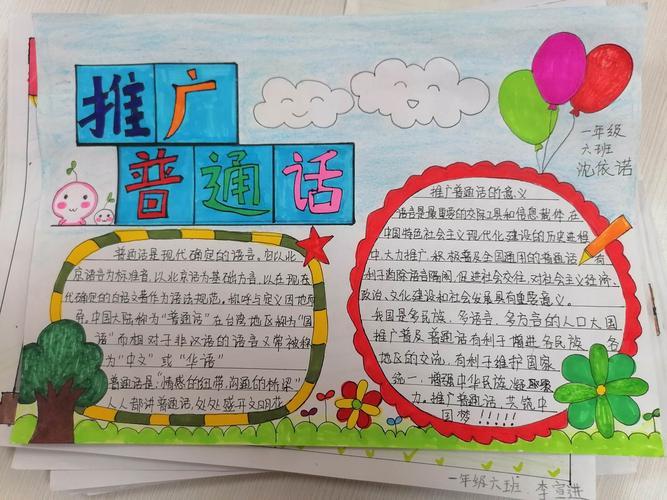 推广
普通话
一年级
六班
沈依诺
普通话是现代确定的语言。它以北
京语音为标准音,以北京话为基础方言,以在现
代确定的白话文著作为语法规范。称呼与定义因地而
异。中国大陆称为"普通话"在台湾地区称为"国
语"而相对于非汉语的语言又常被称
为"中文"或"华语"
普通话是"情感的纽带,沟通的桥梁"
人人都讲普通话,处处盛开文明花
推广普通话的意义
语言是最重要的交际工具和信息载体,在
中国特色社会主义现代化建设的历史进程
中,大力推广、积极普及全国通用的普通话
利于消除语言隔阂,促进社会交往,对社会主义经济、
政治、文化建设和社会发展具有重要意义。
我国是多民族、多语言、多方言的人口大国
推广普及普通话有利于增进各民族各
地区的交流,有利于维护国家
统一,增强中华民族凝聚
力。推广普通话,共筑中
国梦!!!!!
一年级六班 李宣进